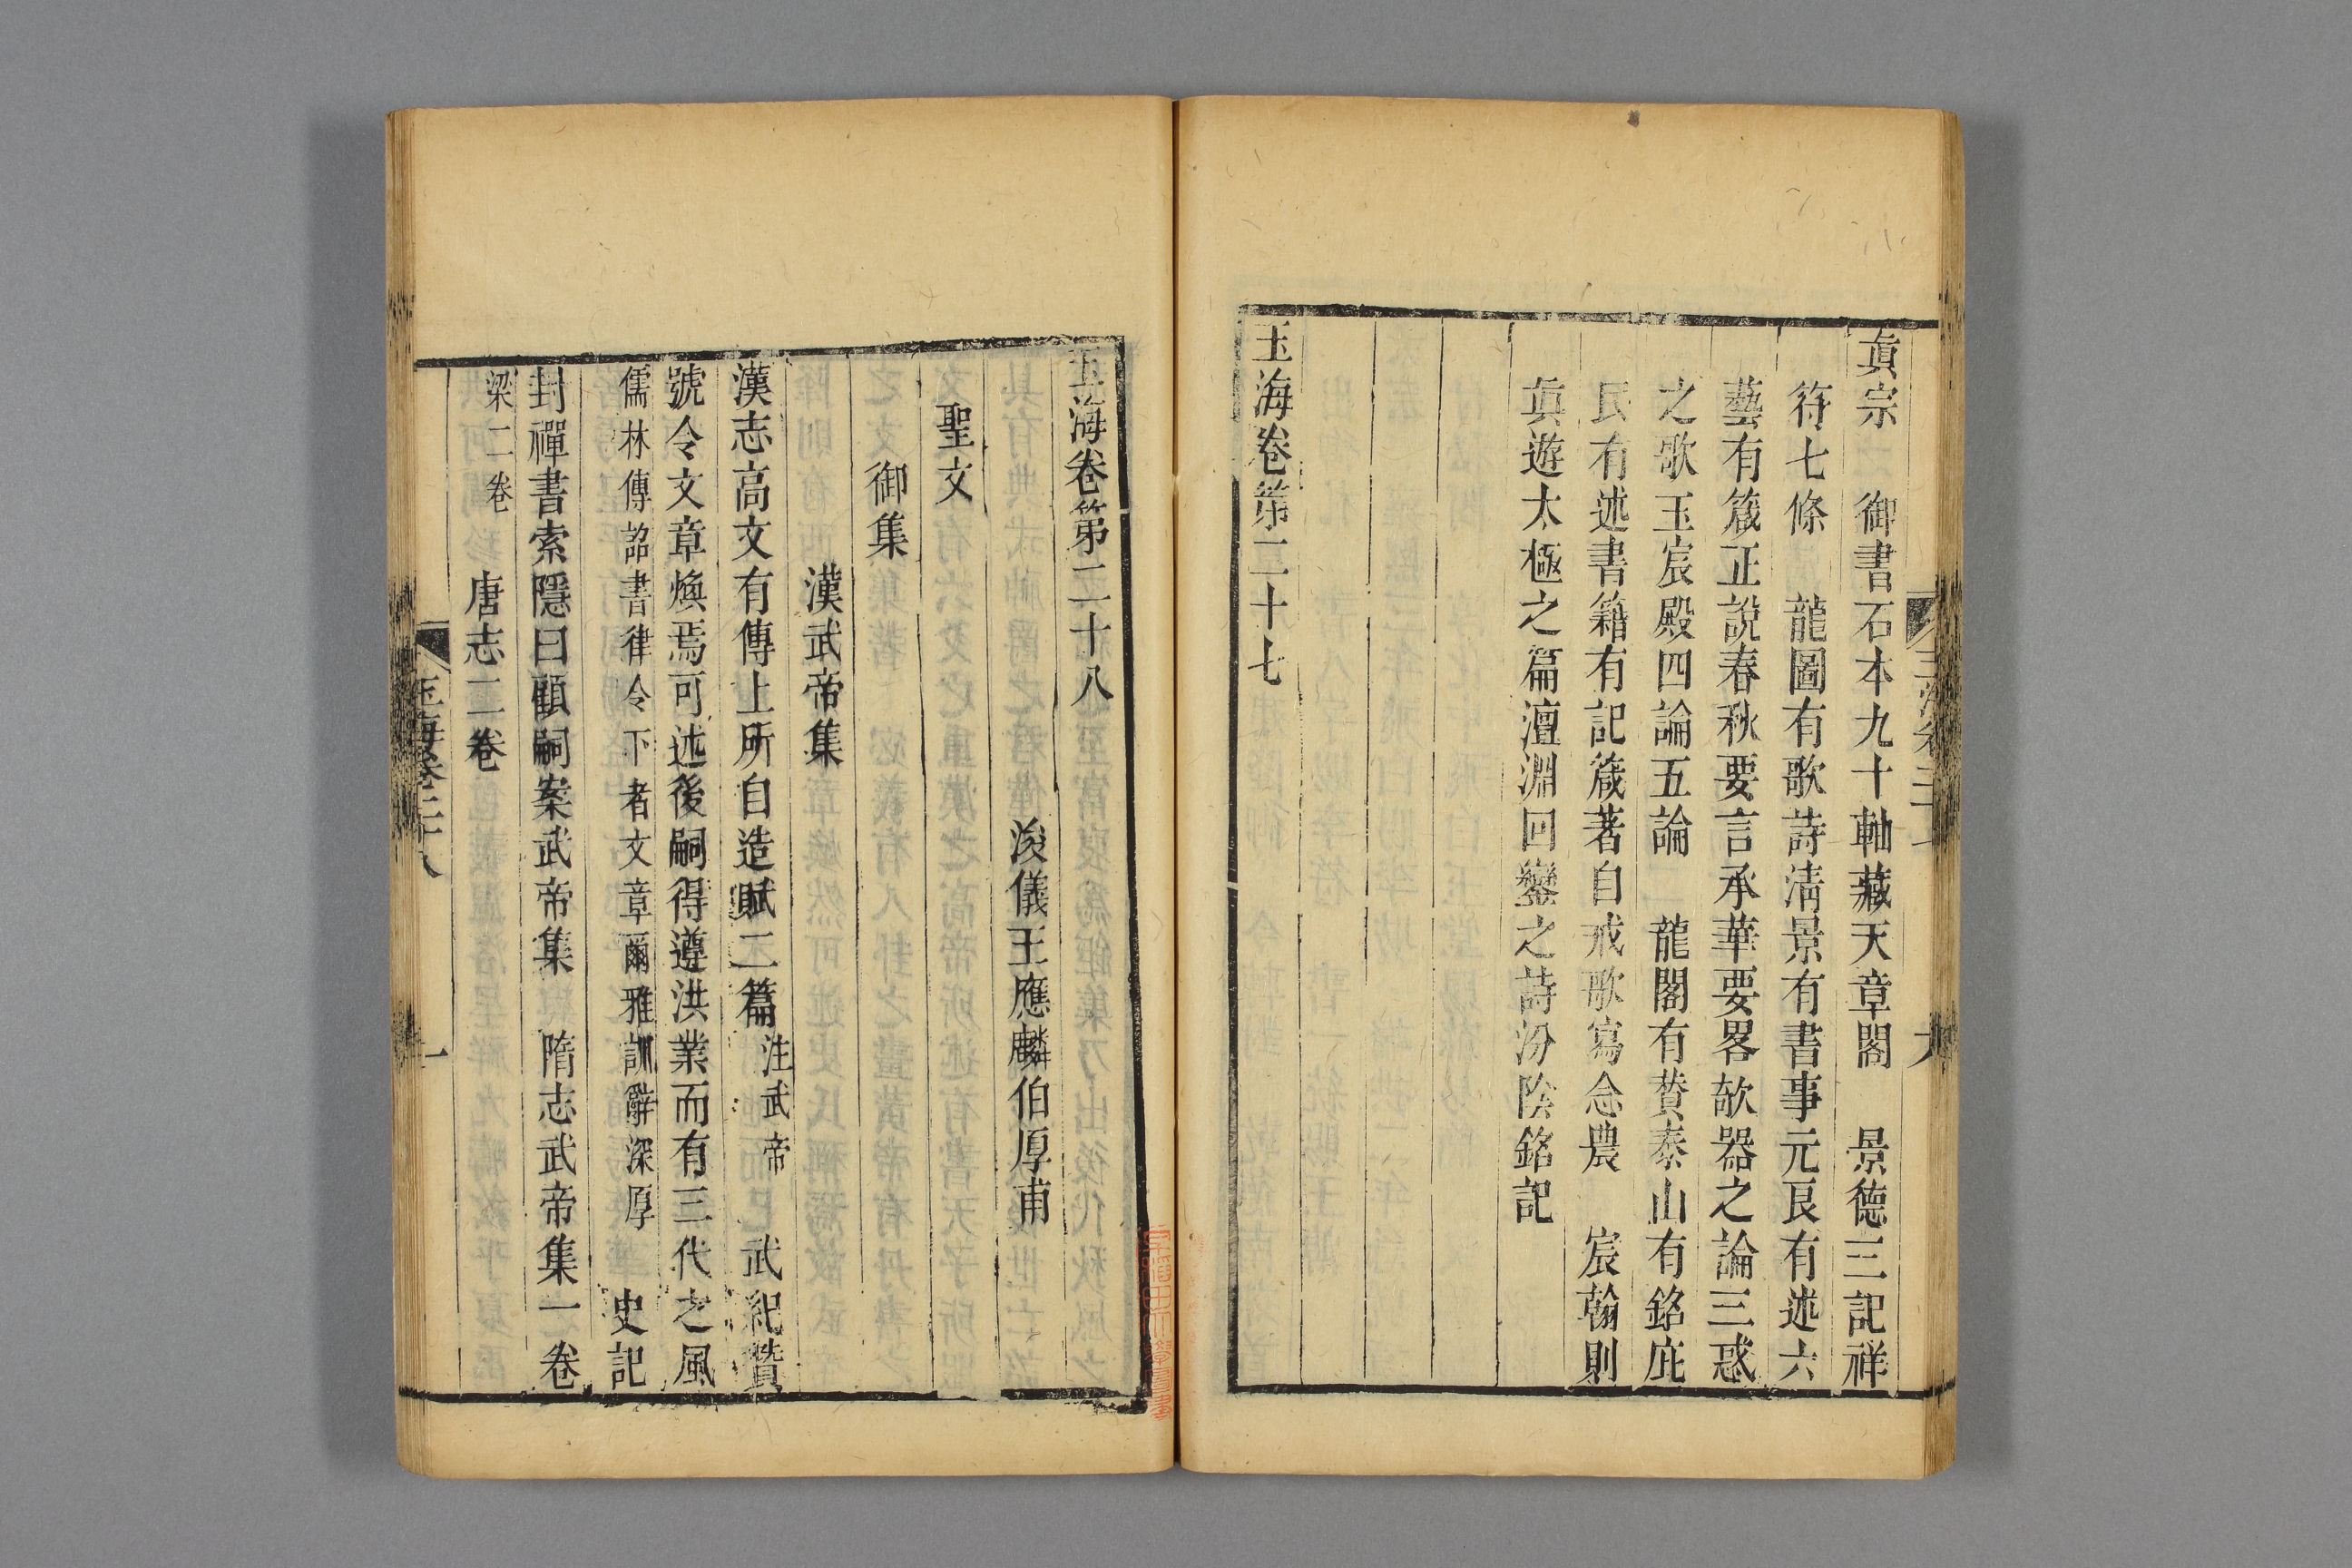 真宗　御書石本九十軸藏天章閣　景德三記祥
符七條　龍圖有歌詩淸景有書事元良有述六
藝有箴正說春秋要言承華要畧欹器之論三惑
之歌玉宸殿四論五論　龍閣有贊泰山有銘庇
民有述書籍有記箴著自戒歌寫念農　宸翰則
真遊太極之篇澶淵回鑾之詩汾陰銘記
玉海卷第二十七
玉海卷第二十八
浚儀王應麟伯厚甫
聖文
御集
漢武帝集
漢志高文有傳上所自造賦二篇注武帝　武紀贊
號令文章煥焉可述後嗣得遵洪業而有三代之風
儒林傳詔書律令下者文章爾雅訓辭深厚　史記
封禪書索隱曰顧嗣案武帝集　隋志武帝集一卷
梁二卷　唐志二卷
玉海卷二十八　一